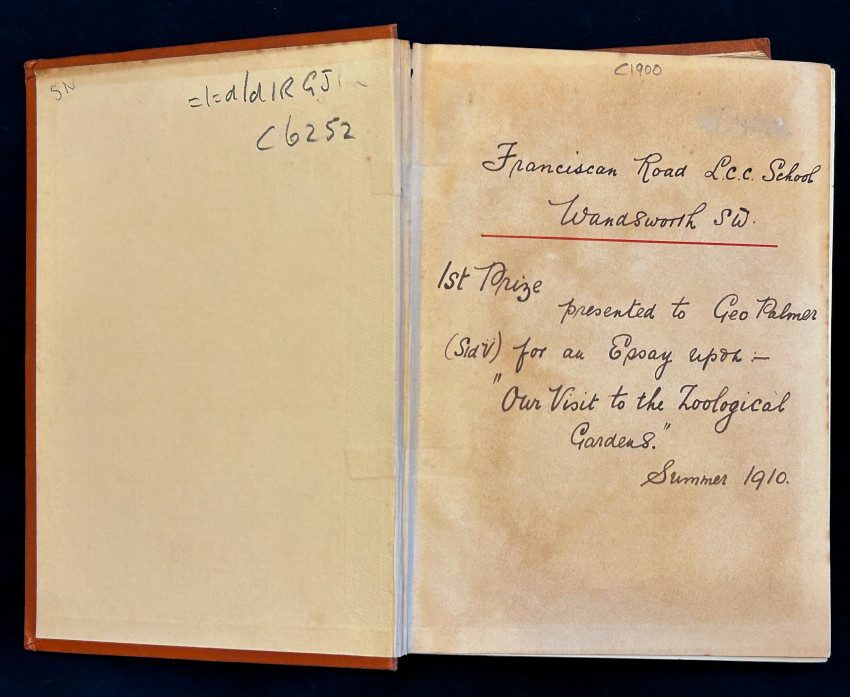 C6252
C1900
Franciscan Road L.C.C. School
Wandsworth SW.
1st Prize
presented to Geo Palmer
(Std V) for an Essay upon :—
"Our Visit to the Zoological
Gardens."
Summer 1910.